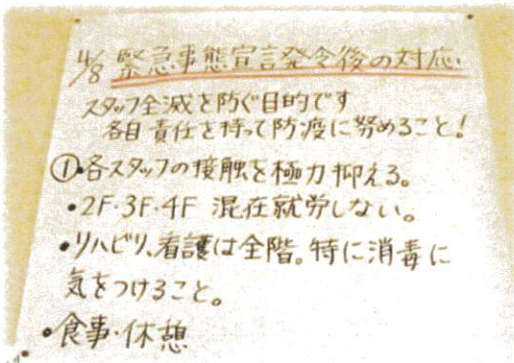 4/8 緊急事態宣言発令後の対応
スタッフ全滅を防ぐ目的です
各自責任を持って防疫に努めること!
①・各スタッフの接触を極力抑える。
・2F・3F・4F 混在就労しない。
・リハビリ、看護は全階。特に消毒に
気をつけること。
・食事・休憩